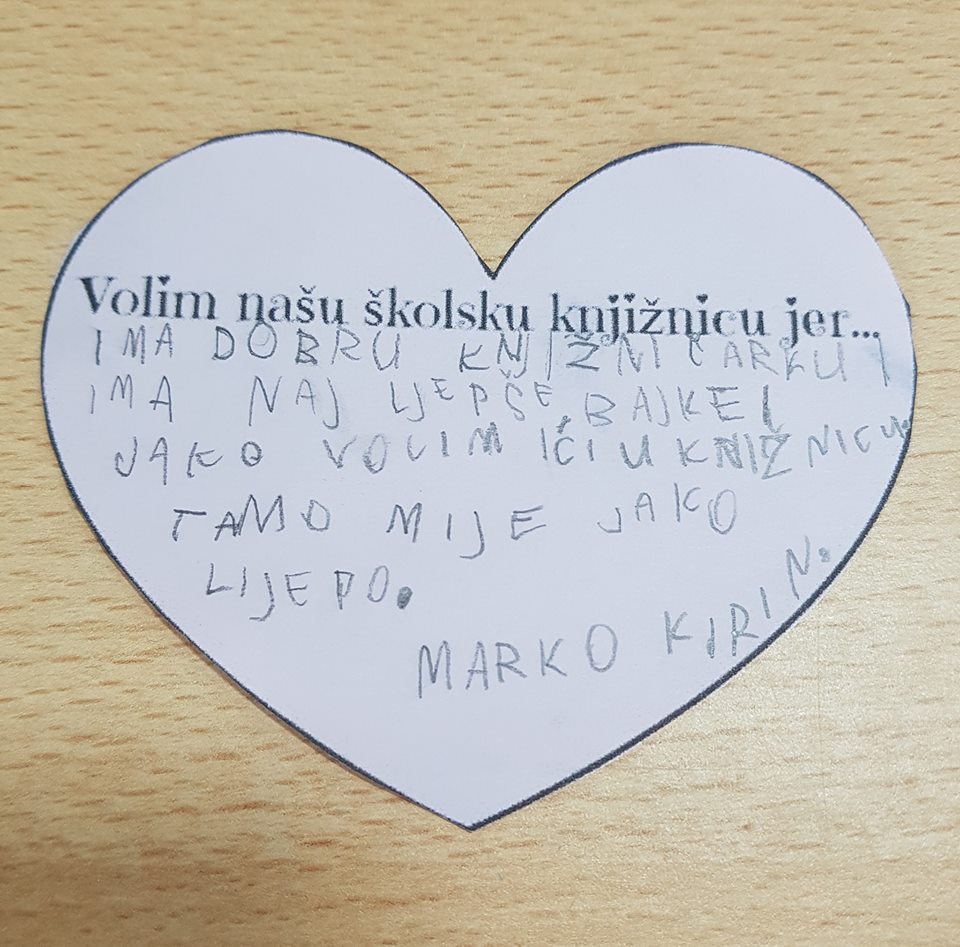 Volim našu školsku knjižnicu jer...
IMA DOBRU KNJIŽNIČARKU I
IMA NAJ LJEPŠE BAJKE I
JAKO VOLIM IĆI U KNIŽNICU.
TAMO MIJE JAKO
LIJEPO.
MARKO KIRIN.